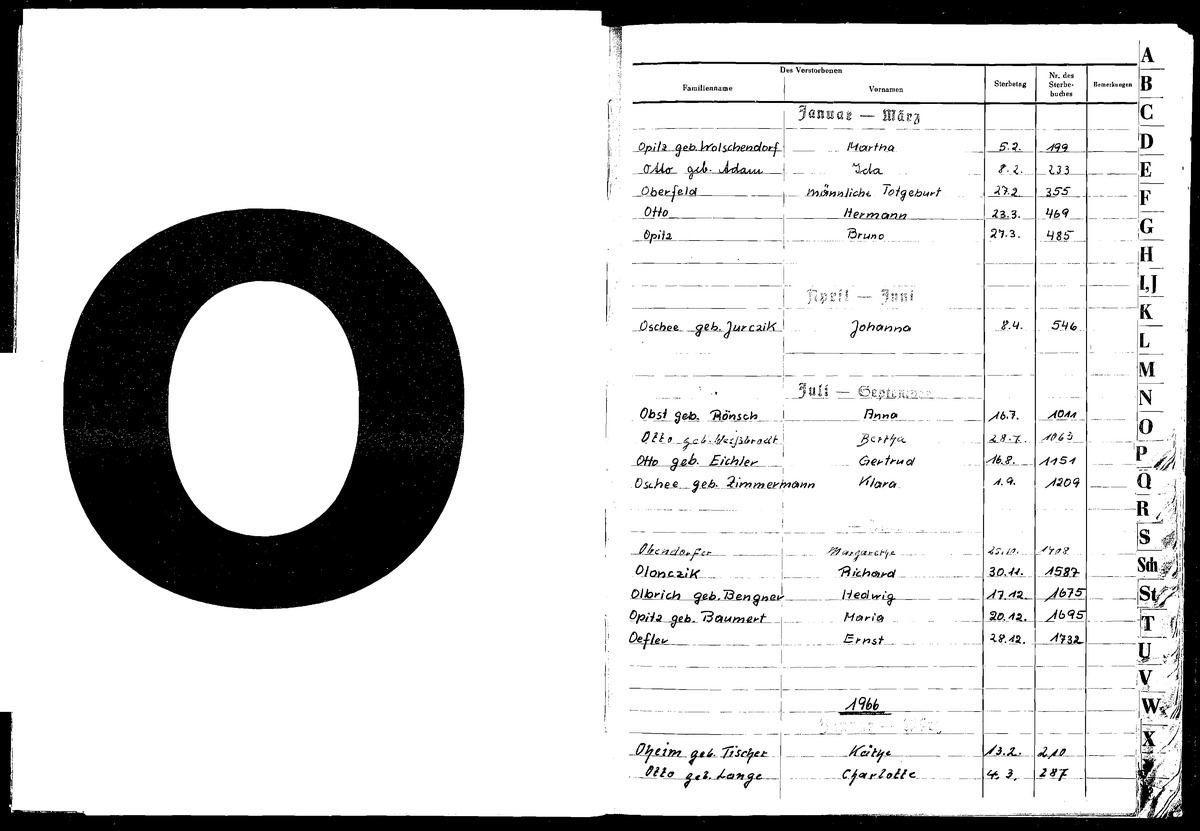 O
Des Verstorbenen
Familienname Vornamen Sterbetag Nr. des Sterbe-buches Bemerkungen
Januar — März
Opitz geb. Wolschendorf Martha 5.2. 199
Otto geb. Adam Ida 8.2. 233
Oberfeld männliche Totgeburt 27.2. 355
Otto Hermann 23.3. 469
Opitz Bruno 27.3. 485
April — Juni
Oschee geb. Jurczik Johanna 8.4. 546
Juli — September
Obst geb. Rönsch Anna 16.7. 1011
Otto geb. Weißbrodt Bertha 28.7. 1063
Otto geb. Eichler Gertrud 16.8. 1151
Oschee geb. Zimmermann Klara 1.9. 1209
Obendorfer Margarethe 25.10. 1408
Olonczik Richard 30.11. 1587
Olbrich geb. Bengner Hedwig 17.12. 1675
Opitz geb. Baumert Maria 20.12. 1695
Oefler Ernst 28.12. 1732
1966
Januar — März
Oheim geb. Tischer Käthe 13.2. 210
Otto geb. Lange Charlotte 4.3. 287
A
B
C
D
E
F
G
H
I,J
K
L
M
N
O
P
Q
R
S
Sch
St
T
U
V
W
X